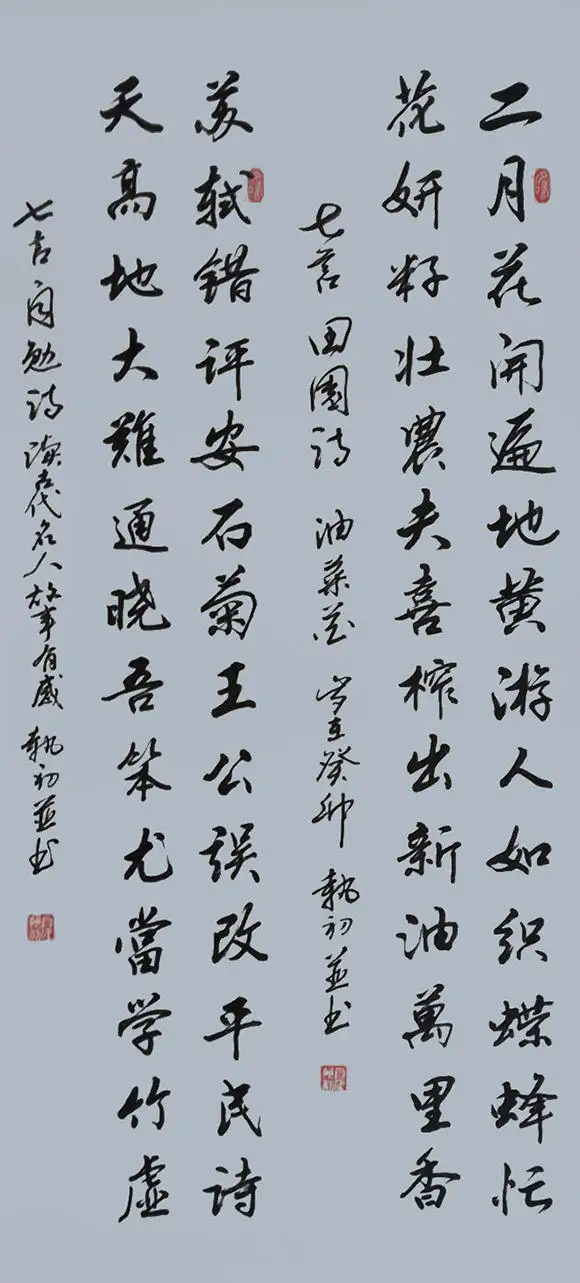 二月花开遍地黄游人如织蝶蜂忙
花妍籽壮农夫喜榨出新油萬里香
七言田園诗 油菜花 岁在癸卯 執初並书
苏轼错评安石菊王公误改平民詩
天高地大難通晓吾笨尤當学竹虚
七言自勉诗 读古代名人故事有感 執初並书